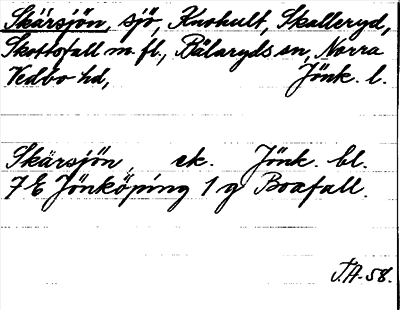 Skärsjön, sjö, Knohult, Skalleryd,
Skottsfall m. fl., Bälaryds sn, Norra
Vedbo hd, Jönk. l.
Skärsjön, ek. Jönk. bl.
7E Jönköping 1 g Boafall.
J.A. 58.